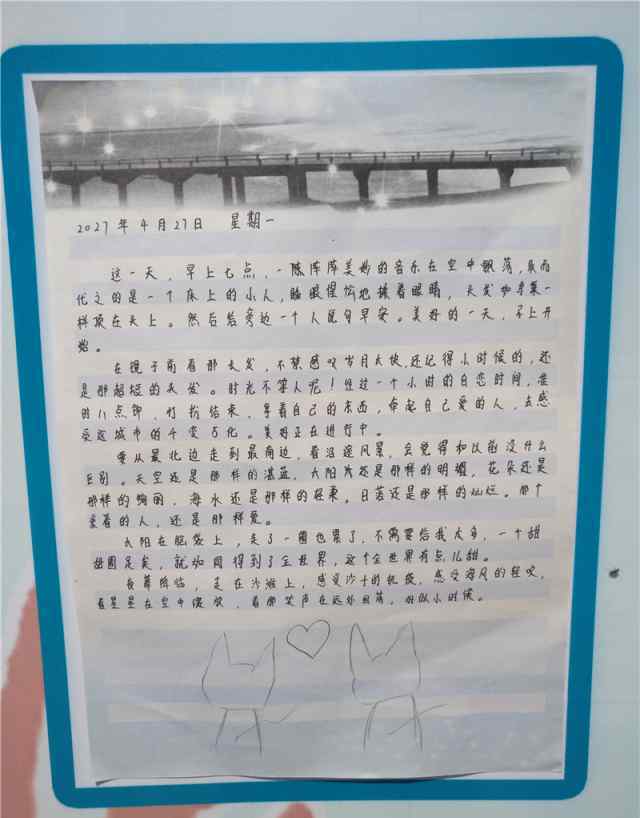 2027年4月27日 星期一
这一天，早上七点，一阵阵阵美妙的音乐在空中飘荡，取而
代之的是一个床上的小人，睡眼惺忪地揉着眼睛，头发如李莫一
样顶在头上。然后给旁边一个人说句早安。美好的一天，马上开
始。
在镜子前看那长发，不禁感叹岁月太快，还记得小时候的，还
是那超短的头发。时光不等人呢！经过一个小时的自恋时间，准
时八点钟，打扮结束，拿着自己的东西，牵起自己爱的人，去感
受这城市的千变万化。美好正在进行中。
要从最北边走到最南边，看沿途风景，会觉得和以前没什么
区别。天空还是那样的湛蓝，太阳光还是那样的明媚，花朵还是
那样的绚丽，海水还是那样的轻柔。日落还是那样的灿烂。那个
爱着的人，还是那样爱。
太阳在脑袋上，走了一圈也累了，不需要给我太多，一个甜
甜圈足矣，就如同得到了全世界，这个全世界有点儿甜。
夜幕降临，走在沙滩上，感受沙子的抚摸，感受海风的轻吹，
看星星在空中绽放，看那笑声在远处回荡，好似小时候。